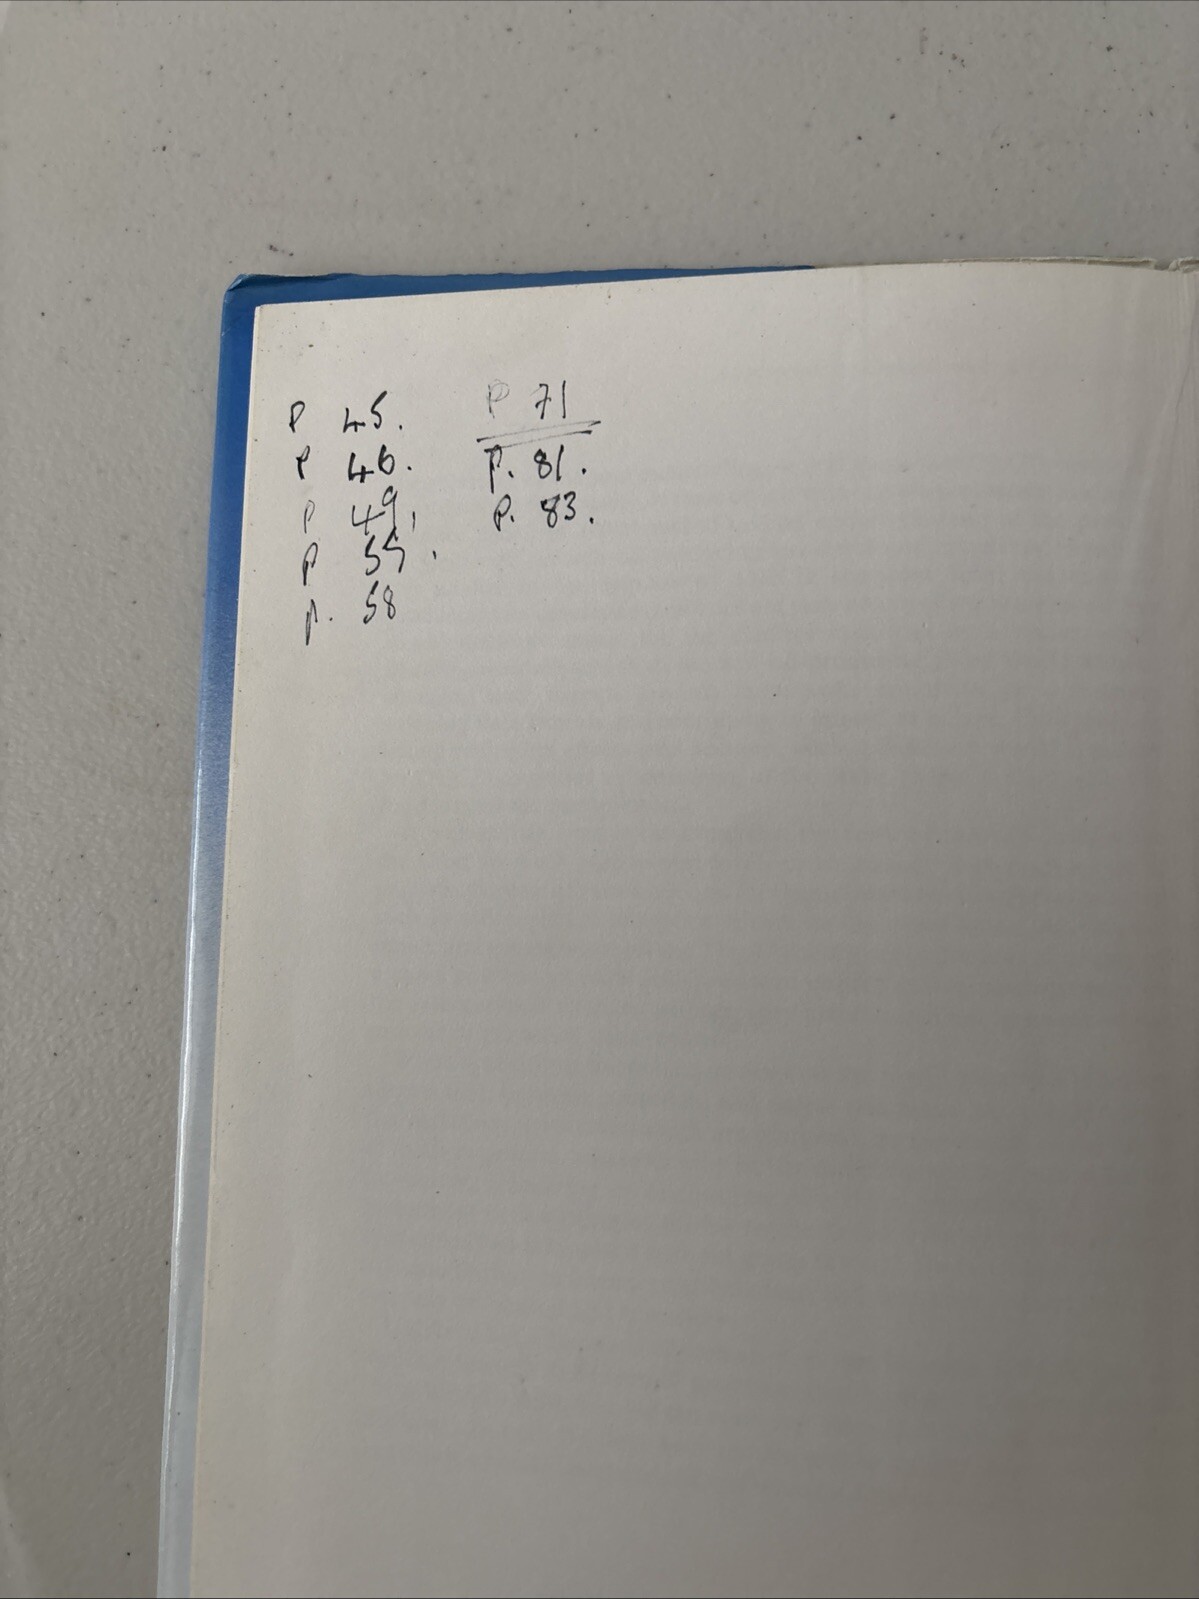 P 45.
P 46.
P 49,
P 55.
p. 58
P 71
P. 81.
P. 83.